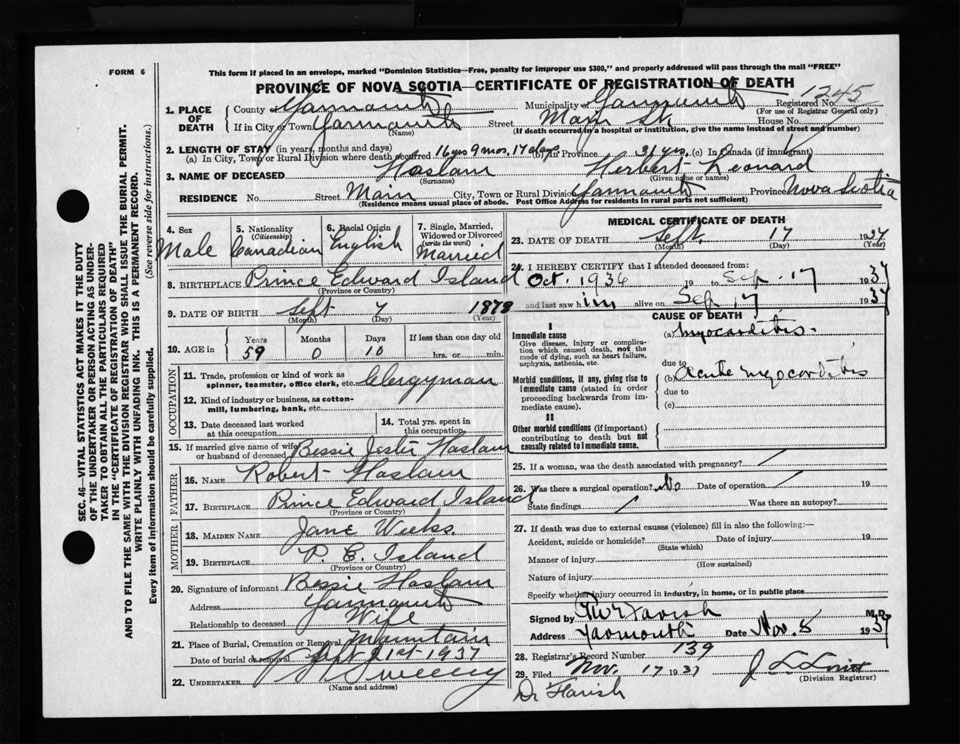 FORM 6
This form if placed in an envelope, marked "Dominion Statistics—Free, penalty for improper use $300," and properly addressed will pass through the mail "FREE"
PROVINCE OF NOVA SCOTIA—CERTIFICATE OF REGISTRATION OF DEATH
1245
1. PLACE OF DEATH County Yarmouth Municipality of Yarmouth Registered No.
(For use of Registrar General only)
If in City or Town Yarmouth Street Main St. House No.
(Name) (If death occurred in a hospital or institution, give the name instead of street and number)
2. LENGTH OF STAY (in years, months and days)
(a) In City, Town or Rural Division where death occurred 16 yrs 9 mos. 17 days (b) In Province 31 yrs. (c) In Canada (if immigrant)
3. NAME OF DECEASED Haslam Herbert Leonard
(Surname) (Given name or names)
RESIDENCE No. Street Main City, Town or Rural Division Yarmouth Province Nova Scotia
(Residence means usual place of abode. Post Office Address for residents in rural parts not sufficient)
4. Sex Male
5. Nationality (Citizenship) Canadian
6. Racial Origin English
7. Single, Married, Widowed or Divorced (write the word) Married
8. BIRTHPLACE Prince Edward Island
(Province or Country)
9. DATE OF BIRTH Sept 7 1878
(Month) (Day) (Year)
10. AGE in Years Months Days If less than one day old
59 0 10 hrs. or min.
OCCUPATION
11. Trade, profession or kind of work as spinner, teamster, office clerk, etc. Clergyman
12. Kind of industry or business, as cotton-mill, lumbering, bank, etc.
13. Date deceased last worked at this occupation
14. Total yrs. spent in this occupation
15. If married give name of wife or husband of deceased Bessie Jester Haslam
FATHER
16. NAME Robert Haslam
17. BIRTHPLACE Prince Edward Island
(Province or Country)
MOTHER
18. MAIDEN NAME Jane Weeks.
19. BIRTHPLACE P. E. Island
(Province or Country)
20. Signature of informant Bessie Haslam
Address Yarmouth
Relationship to deceased Wife
21. Place of Burial, Cremation or Removal Mountain
Date of burial or removal Sept 21st 1937
22. UNDERTAKER Sweeny
(Name and address)
MEDICAL CERTIFICATE OF DEATH
23. DATE OF DEATH Sept. 17 1937
(Month) (Day) (Year)
24. I HEREBY CERTIFY that I attended deceased from:
Oct. 1936 19 to Sep. 17 1937
and last saw him alive on Sep 17 1937
CAUSE OF DEATH
I
Immediate cause
Give disease, injury or complication which caused death, not the mode of dying, such as heart failure, asphyxia, asthenia, etc.
(a) Myocarditis.
due to
Morbid conditions, if any, giving rise to immediate cause (stated in order proceeding backwards from immediate cause).
(b) Acute myocarditis
due to
(c)
II
Other morbid conditions (if important) contributing to death but not causally related to immediate cause.
25. If a woman, was the death associated with pregnancy?
26. Was there a surgical operation? No Date of operation 19
State findings Was there an autopsy?
27. If death was due to external causes (violence) fill in also the following:—
Accident, suicide or homicide? Date of injury 19
(State which)
Manner of injury
(How sustained)
Nature of injury
Specify whether injury occurred in industry, in home, or in public place
Signed by Farish M.D.
Address Yarmouth Date Nov. 8 1937
28. Registrar's Record Number 139
29. Filed Nov. 17 1937
(Division Registrar)
Dr Farish
SEC. 46—VITAL STATISTICS ACT MAKES IT THE DUTY
OF THE UNDERTAKER OR PERSON ACTING AS UNDER-
TAKER TO OBTAIN ALL THE PARTICULARS REQUIRED
IN THE "CERTIFICATE OF REGISTRATION OF DEATH"
AND TO FILE THE SAME WITH THE DIVISION REGISTRAR WHO SHALL ISSUE THE BURIAL PERMIT.
WRITE PLAINLY WITH UNFADING INK. THIS IS A PERMANENT RECORD.
Every item of information should be carefully supplied. (See reverse side for instructions.)